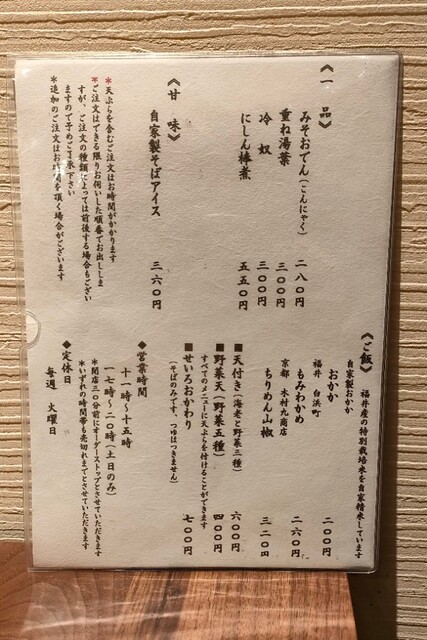 《一 品》
みそおでん（こんにゃく） 二八〇円
重ね湯葉 三〇〇円
冷 奴 三〇〇円
にしん棒煮 五五〇円
《甘 味》
自家製そばアイス 三六〇円
＊天ぷらを含むご注文はお時間がかかります
＊ご注文はできる限りお伺いした順番でお出ししま
すが、ご注文の種類によっては前後する場合もござい
ますので予めご了承下さい
＊追加のご注文はお時間を頂く場合がございます
《ご飯》
福井産の特別栽培米を自家精米しています
自家製おかか
おかか 二〇〇円
福井 白浜町
もみわかめ 二六〇円
京都 木村九商店
ちりめん山椒 三二〇円
■天付き（海老と野菜三種） 六〇〇円
■野菜天（野菜五種） 四〇〇円
すべてのメニューに天ぷらを付けることができます
■せいろおかわり 七〇〇円
（そばのみです。つゆはつきません）
◆営業時間
十一時〜十五時
一七時〜二〇時（土日のみ）
＊閉店三〇分前にオーダーストップとさせていただきます
＊いずれの時間帯も売切れまでとさせていただきます
◆定休日
毎週 火曜日